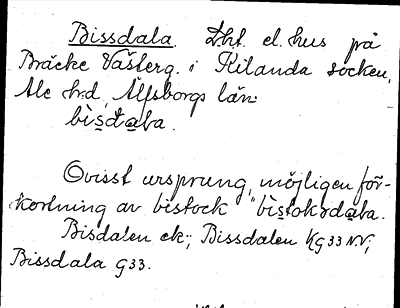 Bissdala. Lht. el. hus på
Bräcke Västerg. i Kilanda socken,
Ale hd, Älfsborgs län.
bìsdaba.
Ovisst ursprung, möjligen för-
kortning av bistock "bìstoksdaba.
Bisdalen ek; Bissdalen KG33 N.V;
Bissdala G33.